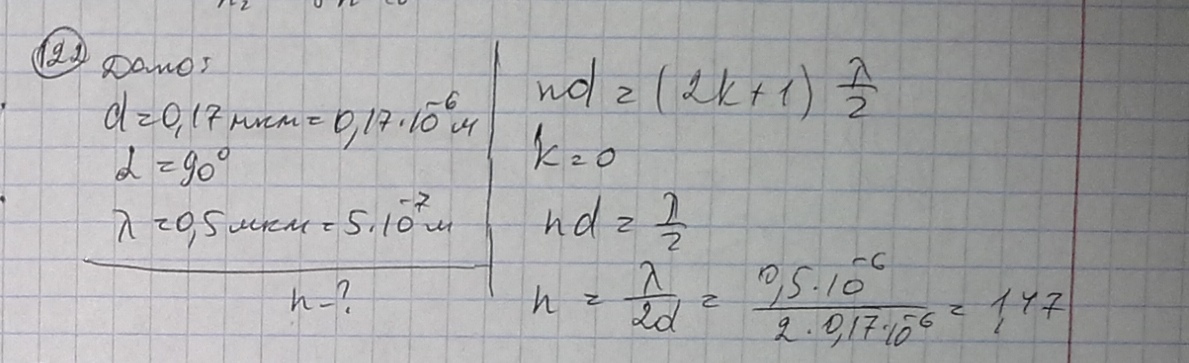 122 Дано:
d = 0,17 мкм = 0,17·10⁻⁶ м
α = 90°
λ = 0,5 мкм = 5·10⁻⁷ м
n - ?
nd = (2k+1) λ/2
k = 0
nd = λ/2
n = λ/2d = 0,5·10⁻⁶/2·0,17·10⁻⁶ = 1,47